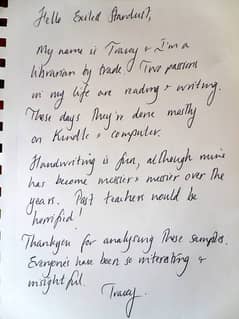 Hello Exiled Stardust,
My name is Tracey & I'm a
librarian by trade. Two passions
in my life are reading & writing.
These days they're done mostly
on Kindle & computer.
Handwriting is fun, although mine
has become messier & messier over the
years. Past teachers would be
horrified!
Thankyou for analysing these samples.
Everyone's have been so interesting &
insightful.
Tracey.